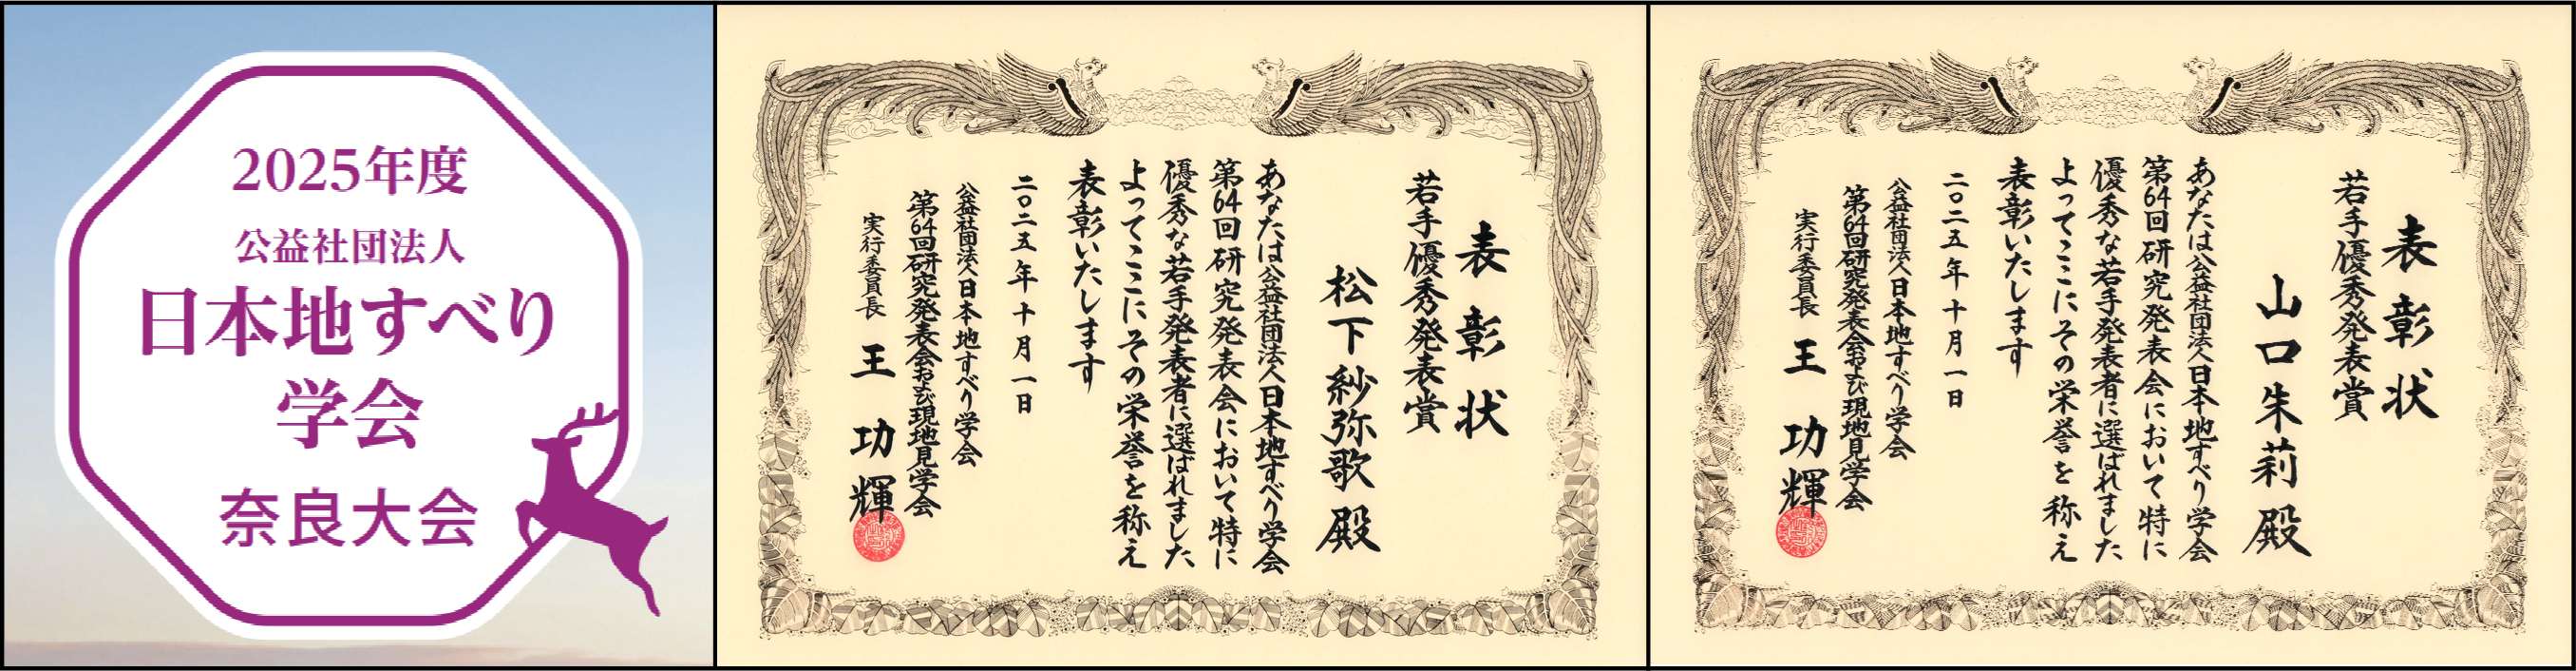 2025年度
公益社団法人
日本地すべり
学会
奈良大会
表彰状
若手優秀発表賞
松下紗弥歌殿
あなたは公益社団法人日本地すべり学会
第64回研究発表会において特に
優秀な若手発表者に選ばれました
よってここにその栄誉を称え
表彰いたします
二〇二五年十月一日
公益社団法人日本地すべり学会
第64回研究発表会および現地見学会
実行委員長 王功輝
表彰状
若手優秀発表賞
山口朱莉殿
あなたは公益社団法人日本地すべり学会
第64回研究発表会において特に
優秀な若手発表者に選ばれました
よってここにその栄誉を称え
表彰いたします
二〇二五年十月一日
公益社団法人日本地すべり学会
第64回研究発表会および現地見学会
実行委員長 王功輝